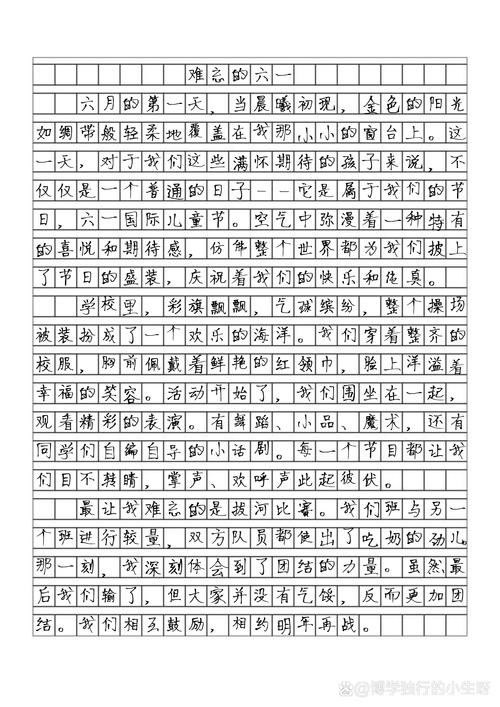 难忘的六一
六月的第一天，当晨曦初现，金色的阳光
如绸带般轻柔地覆盖在我那小小的窗台上。这
一天，对于我们这些满怀期待的孩子来说，不
仅仅是一个普通的日子——它是属于我们的节
日，六一国际儿童节。空气中弥漫着一种特有
的喜悦和期待感，仿佛整个世界都为我们披上
了节日的盛装，庆祝着我们的快乐和纯真。
学校里，彩旗飘飘，气球缤纷，整个操场
被装扮成了一个欢乐的海洋。我们穿着整齐的
校服，胸前佩戴着鲜艳的红领巾，脸上洋溢着
幸福的笑容。活动开始了，我们围坐在一起，
观看精彩的表演。有舞蹈、小品、魔术，还有
同学们自编自导的小话剧。每一个节目都让我
们目不转睛，掌声、欢呼声此起彼伏。
最让我难忘的是拔河比赛。我们班与另一
个班进行较量，双方队员都使出了吃奶的劲儿。
那一刻，我深刻体会到了团结的力量。虽然最
后我们输了，但大家并没有气馁，反而更加团
结。我们相互鼓励，相约明年再战。
@博学独行的小生呀